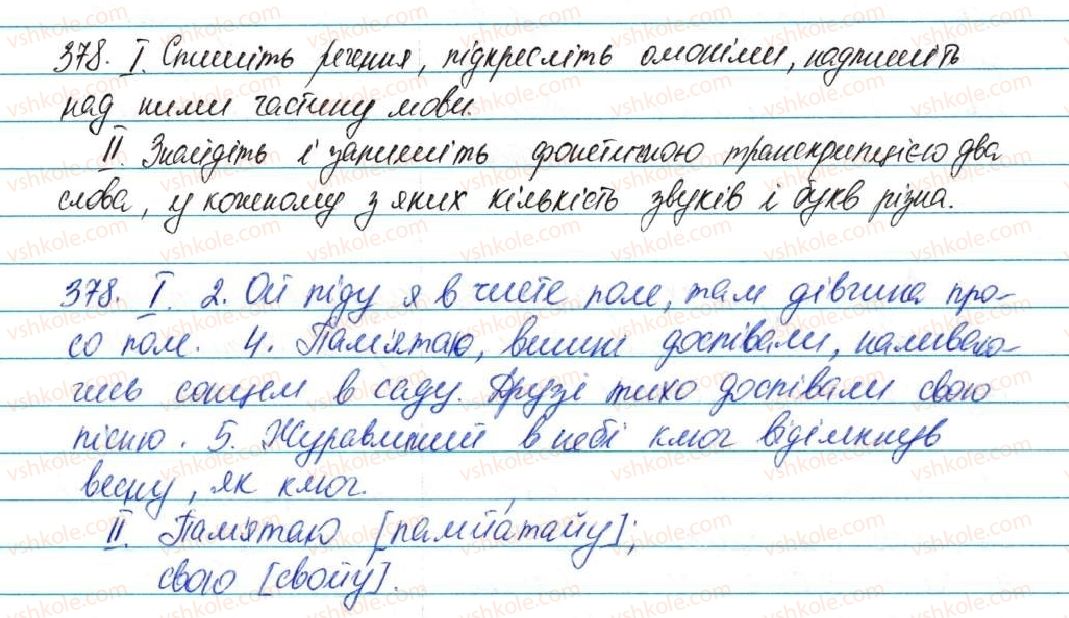 378. I. Спишіть речення, підкресліть омоніми, надпишіть
над ними частину мови.
II Знайдіть і запишіть фонетичною транскрипцією два
слова, у кожному з яких кількість звуків і букв різна.
378. I. 2. Ой піду я в чисте поле, там дівчина про-
со поле. 4. Пам'ятаю, вишні доспівали, наливаю-
чись сонцем в саду. Друзі тихо доспівали свою
пісню. 5. Журавлиний в небі ключ відімкнув
весну, як ключ.
II. Пам'ятаю [памйата́йу];
свою [свойу́].